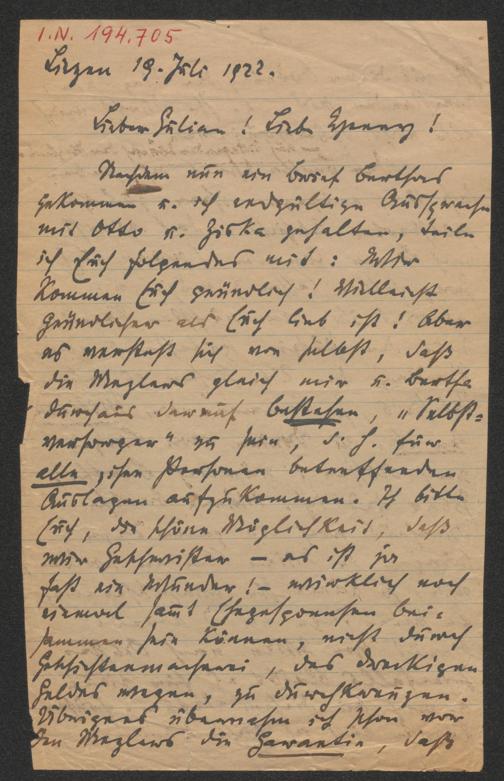 I.N. 194.705
Liezen 19. Juli 1922.
Lieber Julian! Liebe Jenny!
Nachdem nun ein Brief Berthas
gekommen u. ich endgültige Aussprache
mit Otto u. Ziska gehalten, teile
ich Euch folgendes mit: Wir
kommen Euch gründlich! Vielleicht
gründlicher als Euch lieb ist! Aber
es versteht sich von selbst, daß
die Meglers gleich mir u. Bertha
durchaus darauf bestehen, "Selbst=
versorger" zu sein, d. h. für
alle ihre Personen betreffenden
Auslagen aufzukommen. Ich bitte
Euch, die schöne Möglichkeit, daß
wir Geschwister – es ist ja
fast ein Wunder! – wirklich noch
einmal samt Ehegesponsen bei-
sammen sein können, nicht durch
Geschichtenmacherei, des dreckigen
Geldes wegen, zu durchkreuzen.
Übrigens übernahm ich schon vor
den Meglers die Garantie, daß